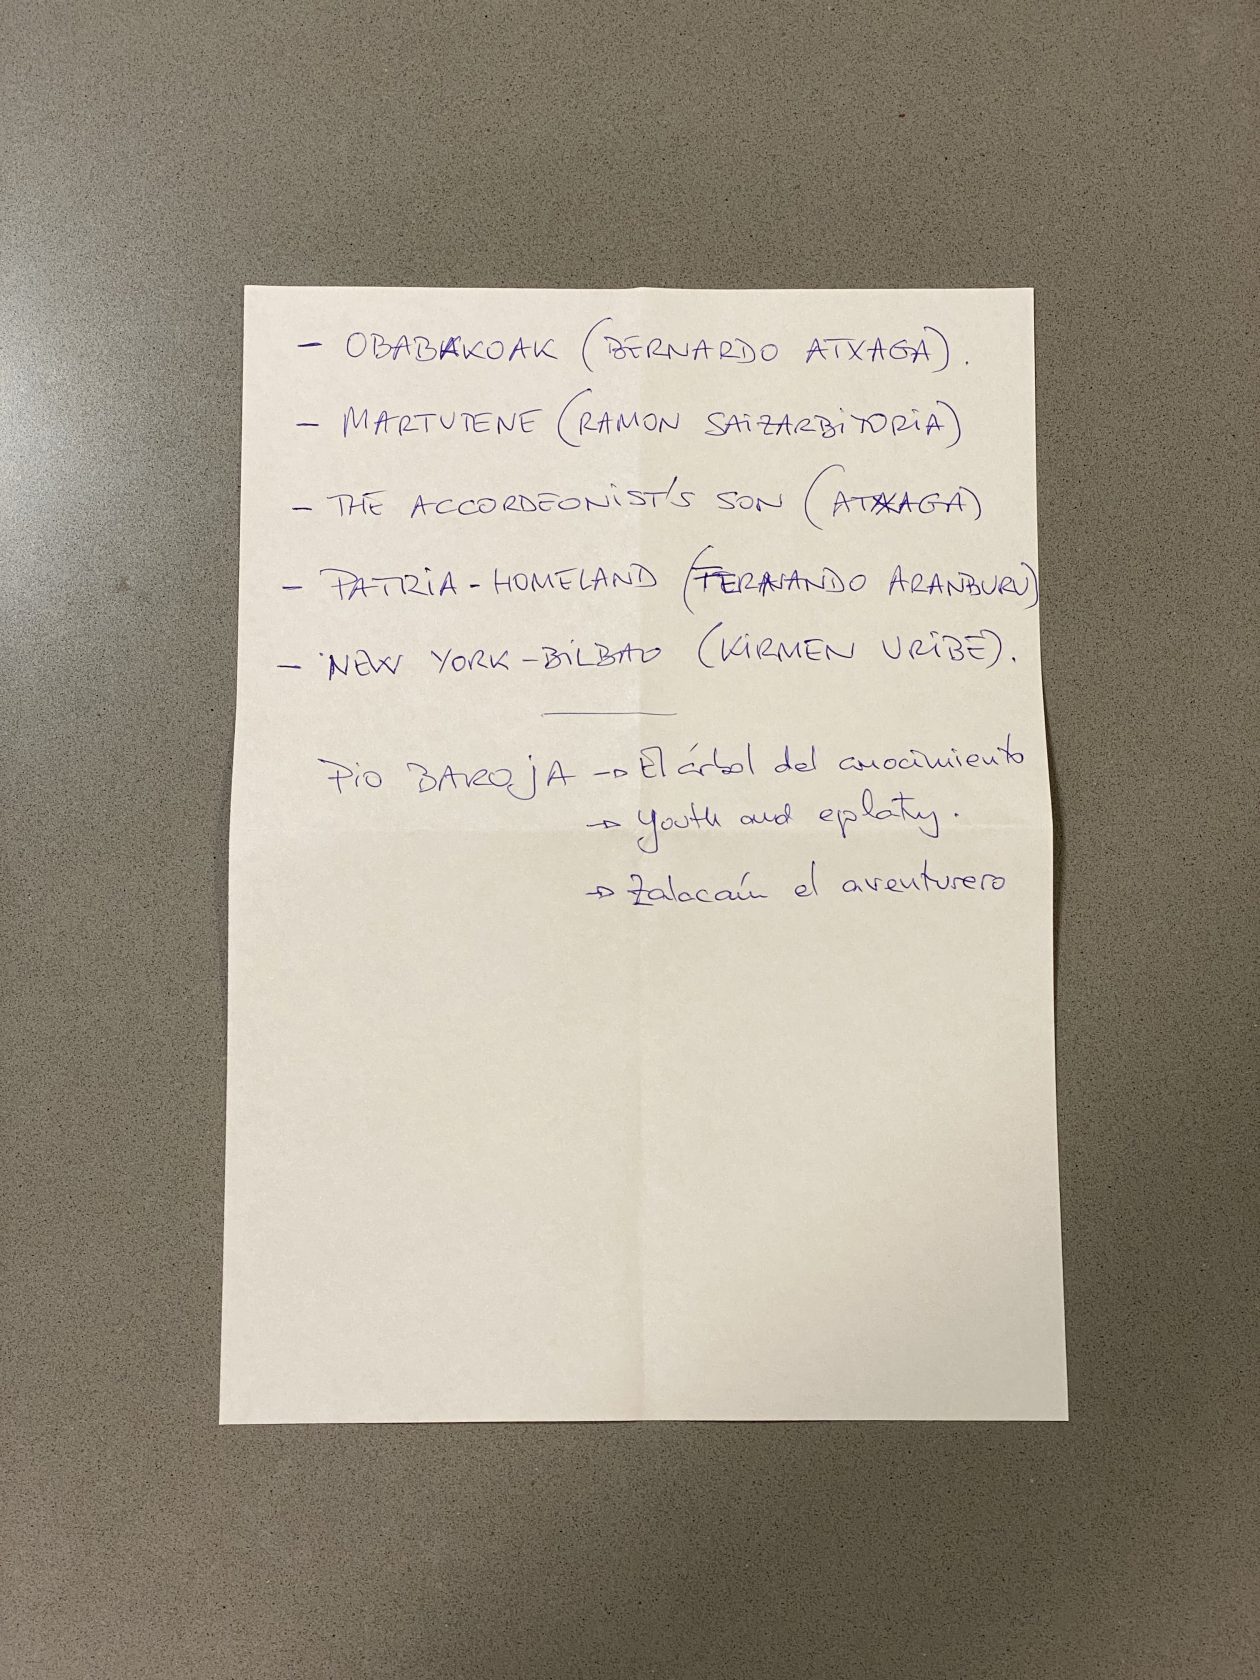 - OBABAKOAK (BERNARDO ATXAGA).
- MARTUTENE (RAMON SAIZARBITORIA)
- THE ACCORDEONIST'S SON (ATXAGA)
- PATRIA - HOMELAND (FERNANDO ARANBURU)
- NEW YORK - BILBAO (KIRMEN URIBE).
PIO BAROJA → El árbol del conocimiento
→ Youth and eplatry.
→ Zalacaín el aventurero